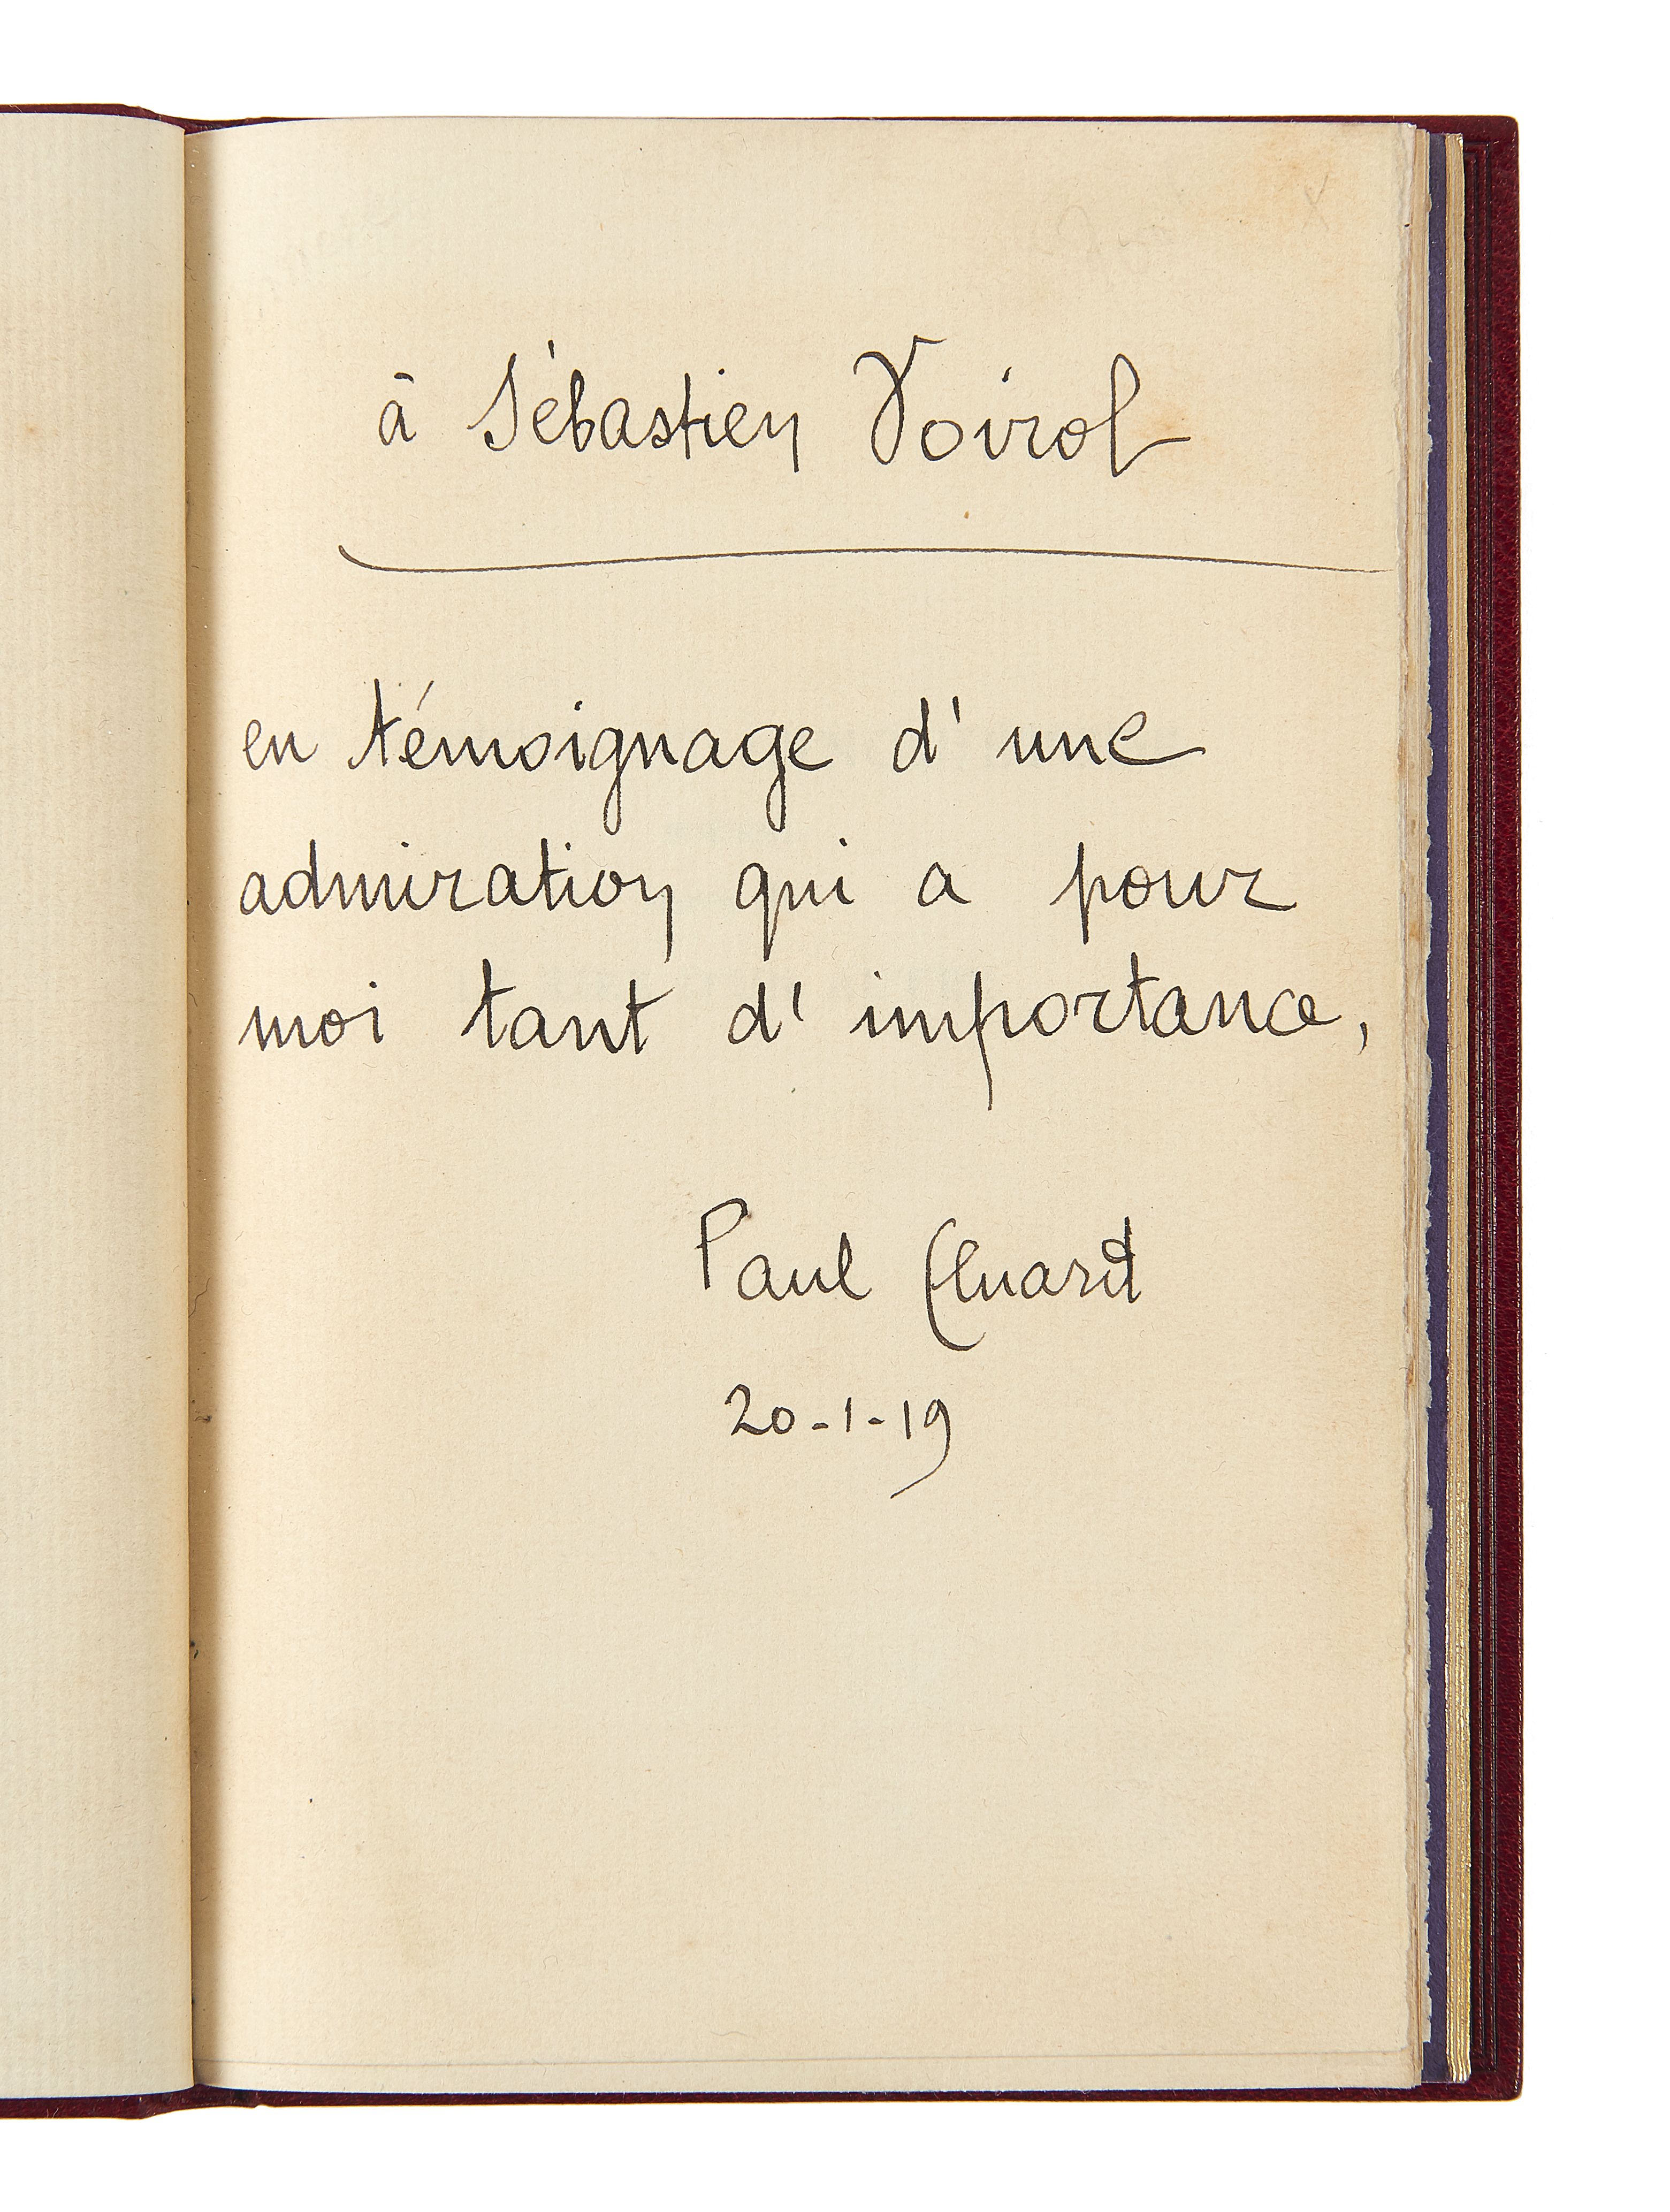 à Sébastien Voirol
en témoignage d'une
admiration qui a pour
moi tant d'importance,
Paul Eluard
20-1-19